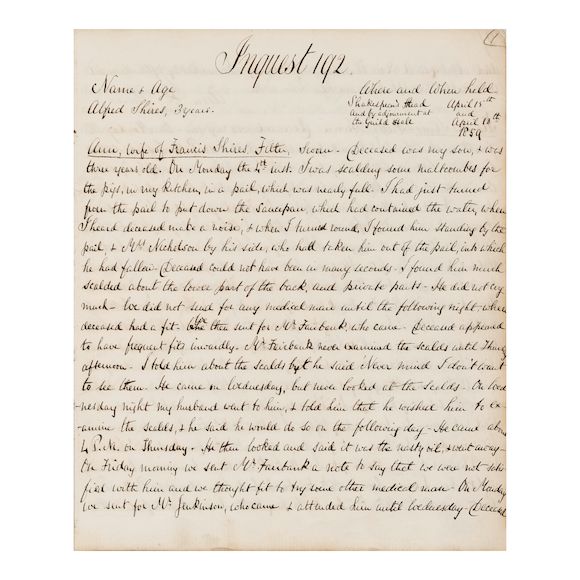 1
Inquest 192.
Name & Age
Where and When held
Alfred Shires, 3 years.
Shakespear's Head April 15th
and by adjournment at and
the Guild Hall April 18th
1859
Ann, wife of Francis Shires, Fitter, Sworn - Deceased was my son, & was
three years old. On Monday the 4th inst. I was scalding some maltcombes for
the pigs, in my kitchen, in a pail, which was nearly full. I had just turned
from the pail to put down the saucepan, which had contained the water, when
I heard deceased make a noise, & when I turned round, I found him standing by the
pail & Mrs Nicholson by his side, who had taken him out of the pail, into which
he had fallen - Deceased could not have been in many seconds - I found him much
scalded about the lower part of the back, and private parts - He did not cry
much - We did not send for any medical man until the following night, when
deceased had a fit - We then sent for Mr Fairbank, who came - Deceased appeared
to have frequent fits inwardly. Mr Fairbank never examined the scalds until Thursday
afternoon - I told him about the scalds but he said Never mind I don't want
to see them. He came on Wednesday, but never looked at the scalds - On Wed-
nesday night my husband went to him, & told him that he wished him to ex-
amine the scalds, & he said he would do so on the following day - He came about
4 P.M. on Thursday - He then looked and said it was the nasty oil, & went away -
On Friday morning we sent Mr Fairbank a note to say that we were not satis-
fied with him and we thought fit to try some other medical man - On Monday
we sent for Mr Jenkinson, who came & attended him until Wednesday - Deceased